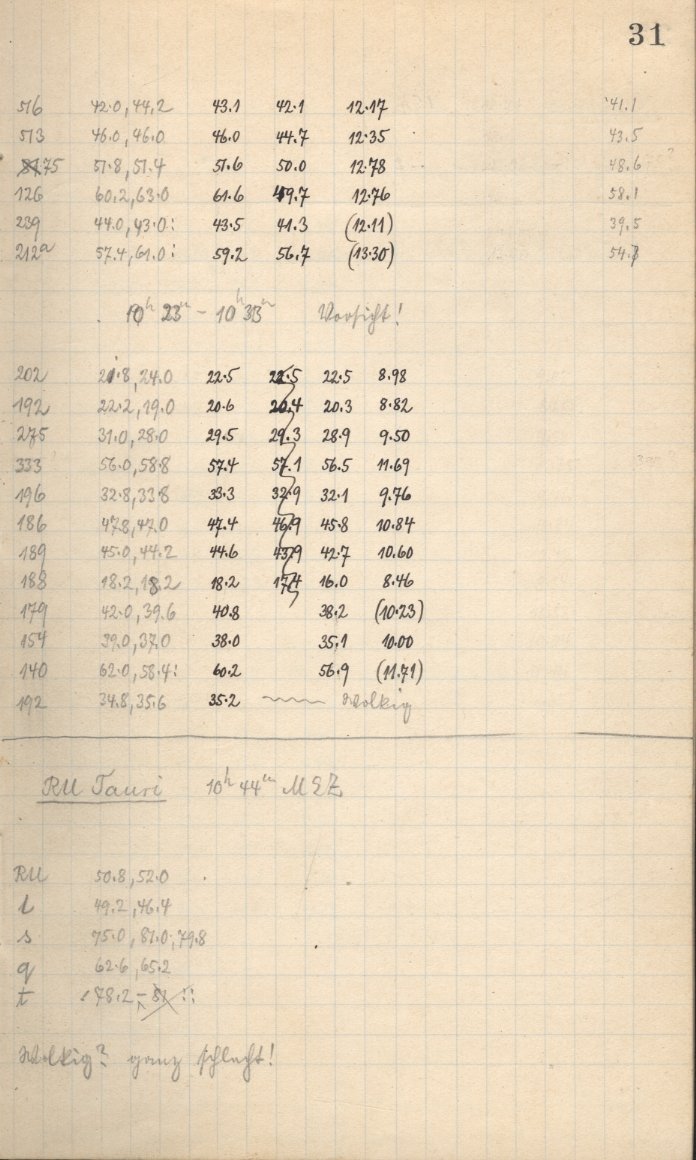 31
516 42.0, 44.2 43.1 42.1 12.17 41.1
513 46.0, 46.0 46.0 44.7 12.35 43.5
75 51.8, 51.4 51.6 50.0 12.78 48.6
126 60.2, 63.0 61.6 59.7 12.76 58.1
239 44.0, 43.0: 43.5 41.3 (12.11) 39.5
212a 57.4, 61.0: 59.2 56.7 (13.30) 54.7
10h 23m - 10h 33m Vorsicht!
202 21.8, 24.0 22.5 22.5 22.5 8.98
192 22.2, 19.0 20.6 20.4 20.3 8.82
275 31.0, 28.0 29.5 29.3 28.9 9.50
333 56.0, 58.8 57.4 57.1 56.5 11.69
196 32.8, 33.8 33.3 32.9 32.1 9.76
186 47.8, 47.0 47.4 46.9 45.8 10.84
189 45.0, 44.2 44.6 43.9 42.7 10.60
188 18.2, 18.2 18.2 17.4 16.0 8.46
179 42.0, 39.6 40.8 38.2 (10.23)
154 39.0, 37.0 38.0 35.1 10.00
140 62.0, 58.4: 60.2 56.9 (11.71)
192 34.8, 35.6 35.2 Wolkig
RU Tauri 10h 44m MEZ
RU 50.8, 52.0
l 49.2, 46.4
s 75.0, 81.0, 79.8
q 62.6, 65.2
t 78.2 ::
Wolkig? ganz schlecht!